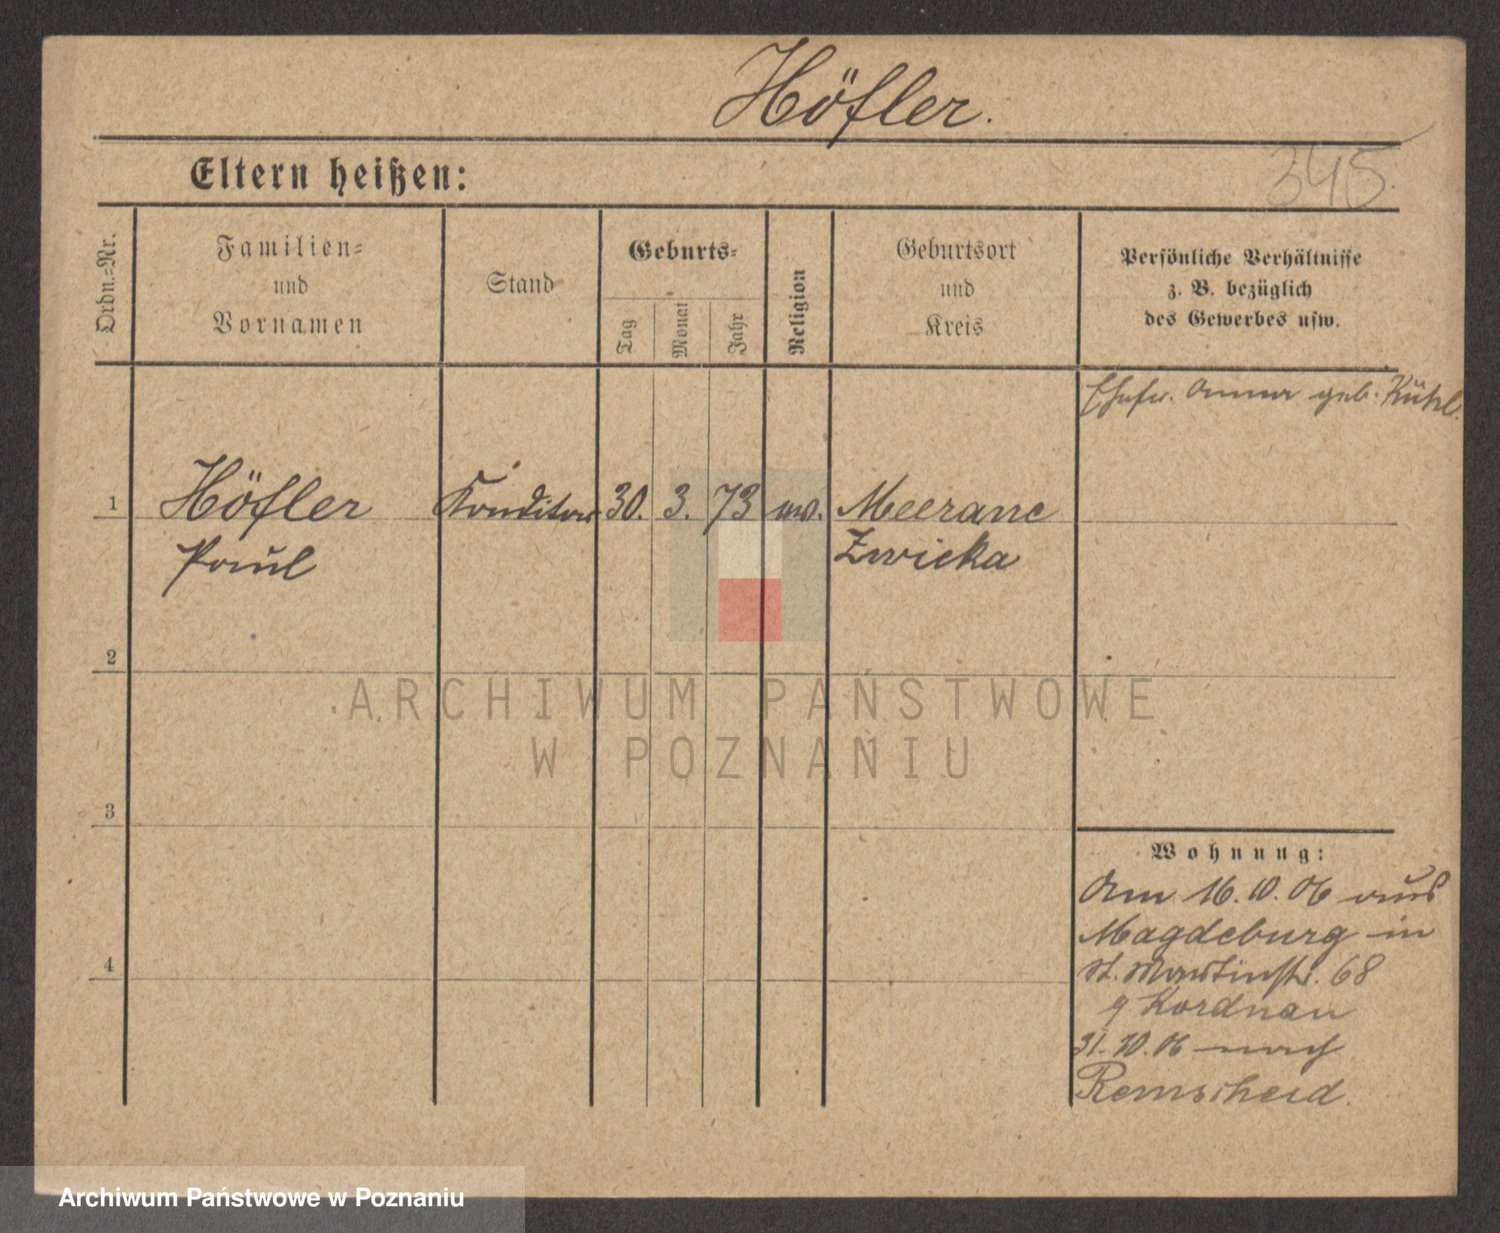 Höfler.
Eltern heißen:
345
Ordn.=Nr.
Familien=
und
Vornamen
Stand
Geburts=
Tag
Monat
Jahr
Religion
Geburtsort
und
Kreis
Persönliche Verhältnisse
z. B. bezüglich
des Gewerbes usw.
Ehefr. Anna geb. Kühl.
1
Höfler
Paul
Konditor
30.
3.
73
ev.
Meerane
Zwicka
2
3
4
Wohnung:
Am 16.10.06 aus
Magdeburg in
St. Martinstr. 68
Kordnau
31.10.06 nach
Remscheid.
ARCHIWUM PAŃSTWOWE
W POZNANIU
Archiwum Państwowe w Poznaniu